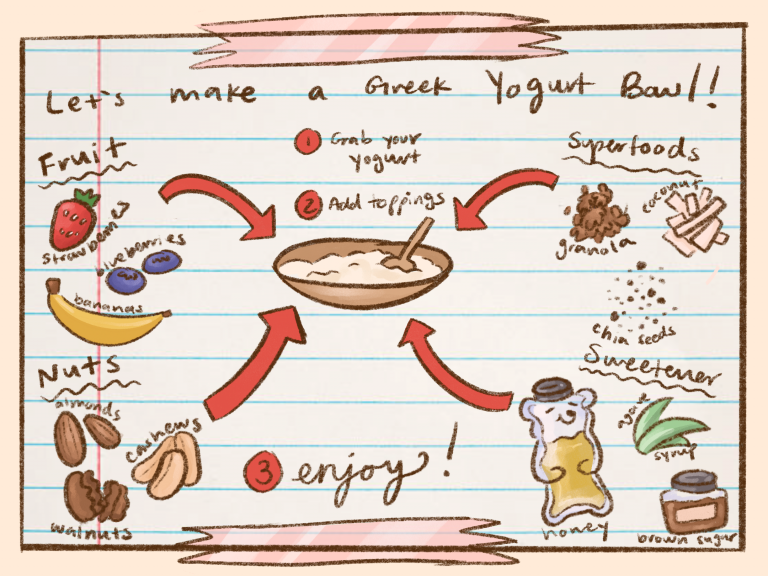 Let's make a Greek Yogurt Bowl!!
Fruit
strawberries
blueberries
bananas
Nuts
almonds
cashews
walnuts
1 Grab your
yogurt
2 Add toppings
3 enjoy!
Superfoods
granola
coconut
chia seeds
Sweetener
honey
agave
syrup
brown sugar